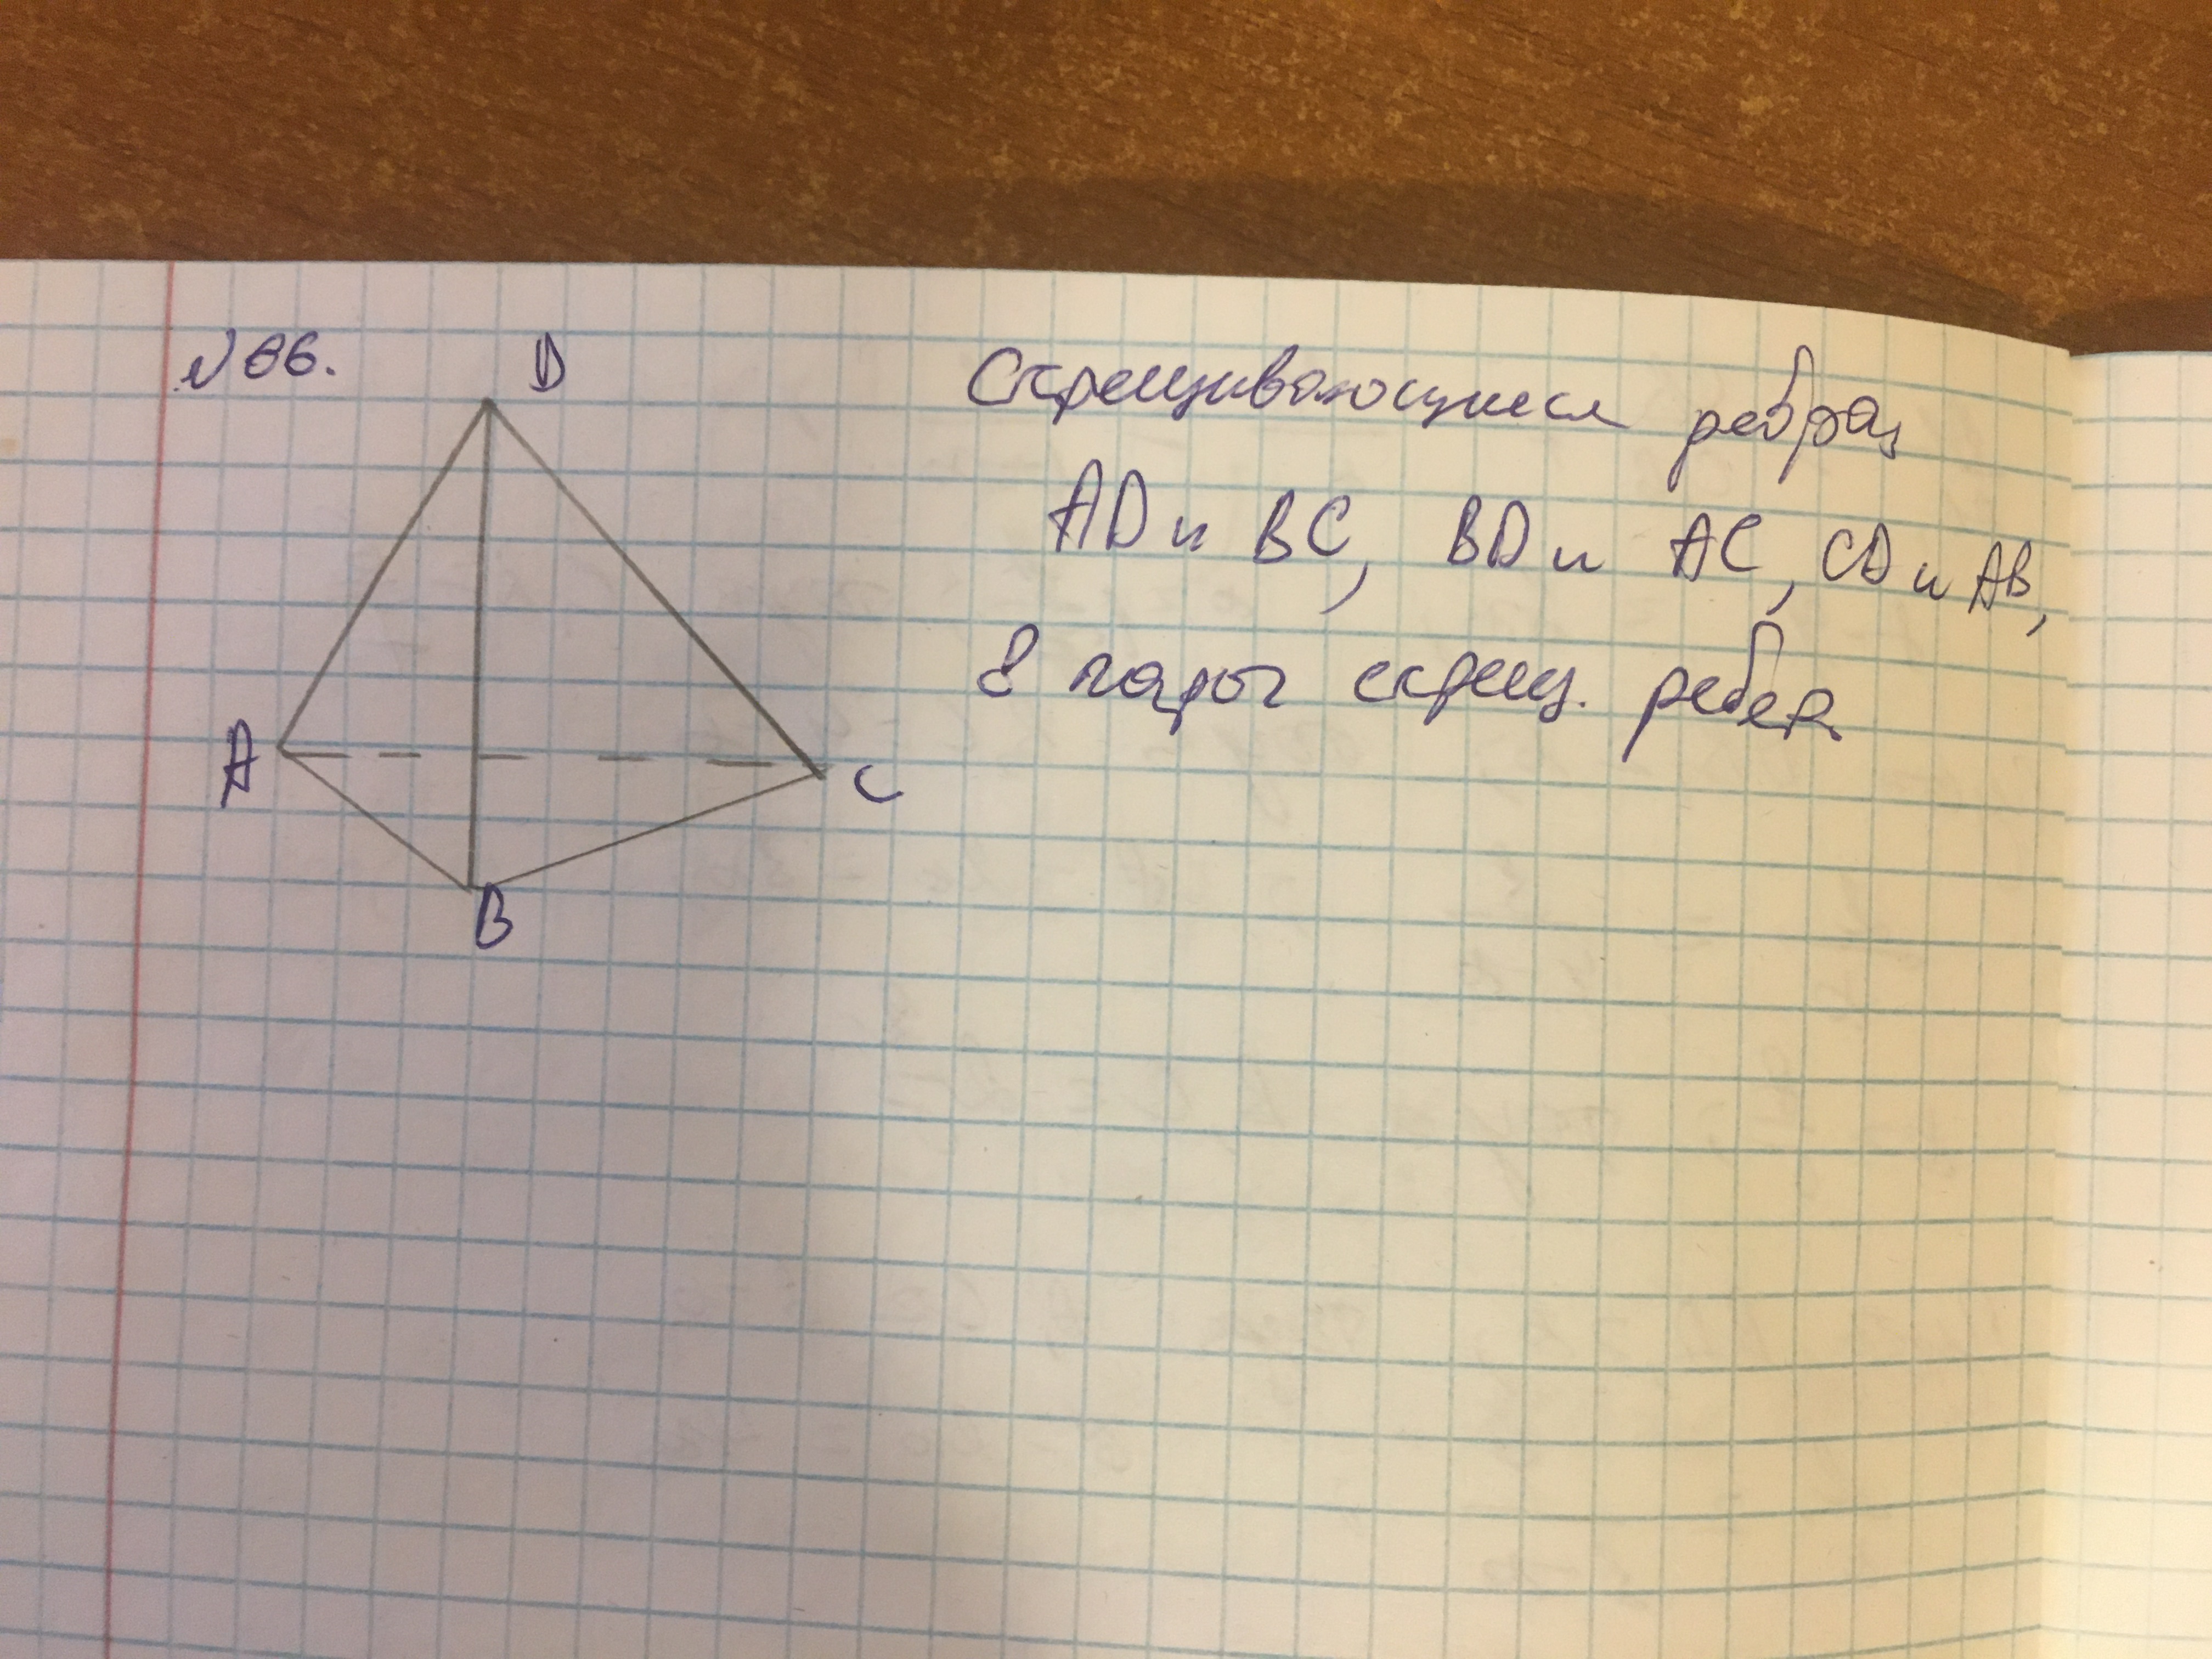 № 66.
D
A
B
C
Скрещивающиеся ребра,
AD и BC, BD и AC, CD и AB,
8 пары скрещ. ребер